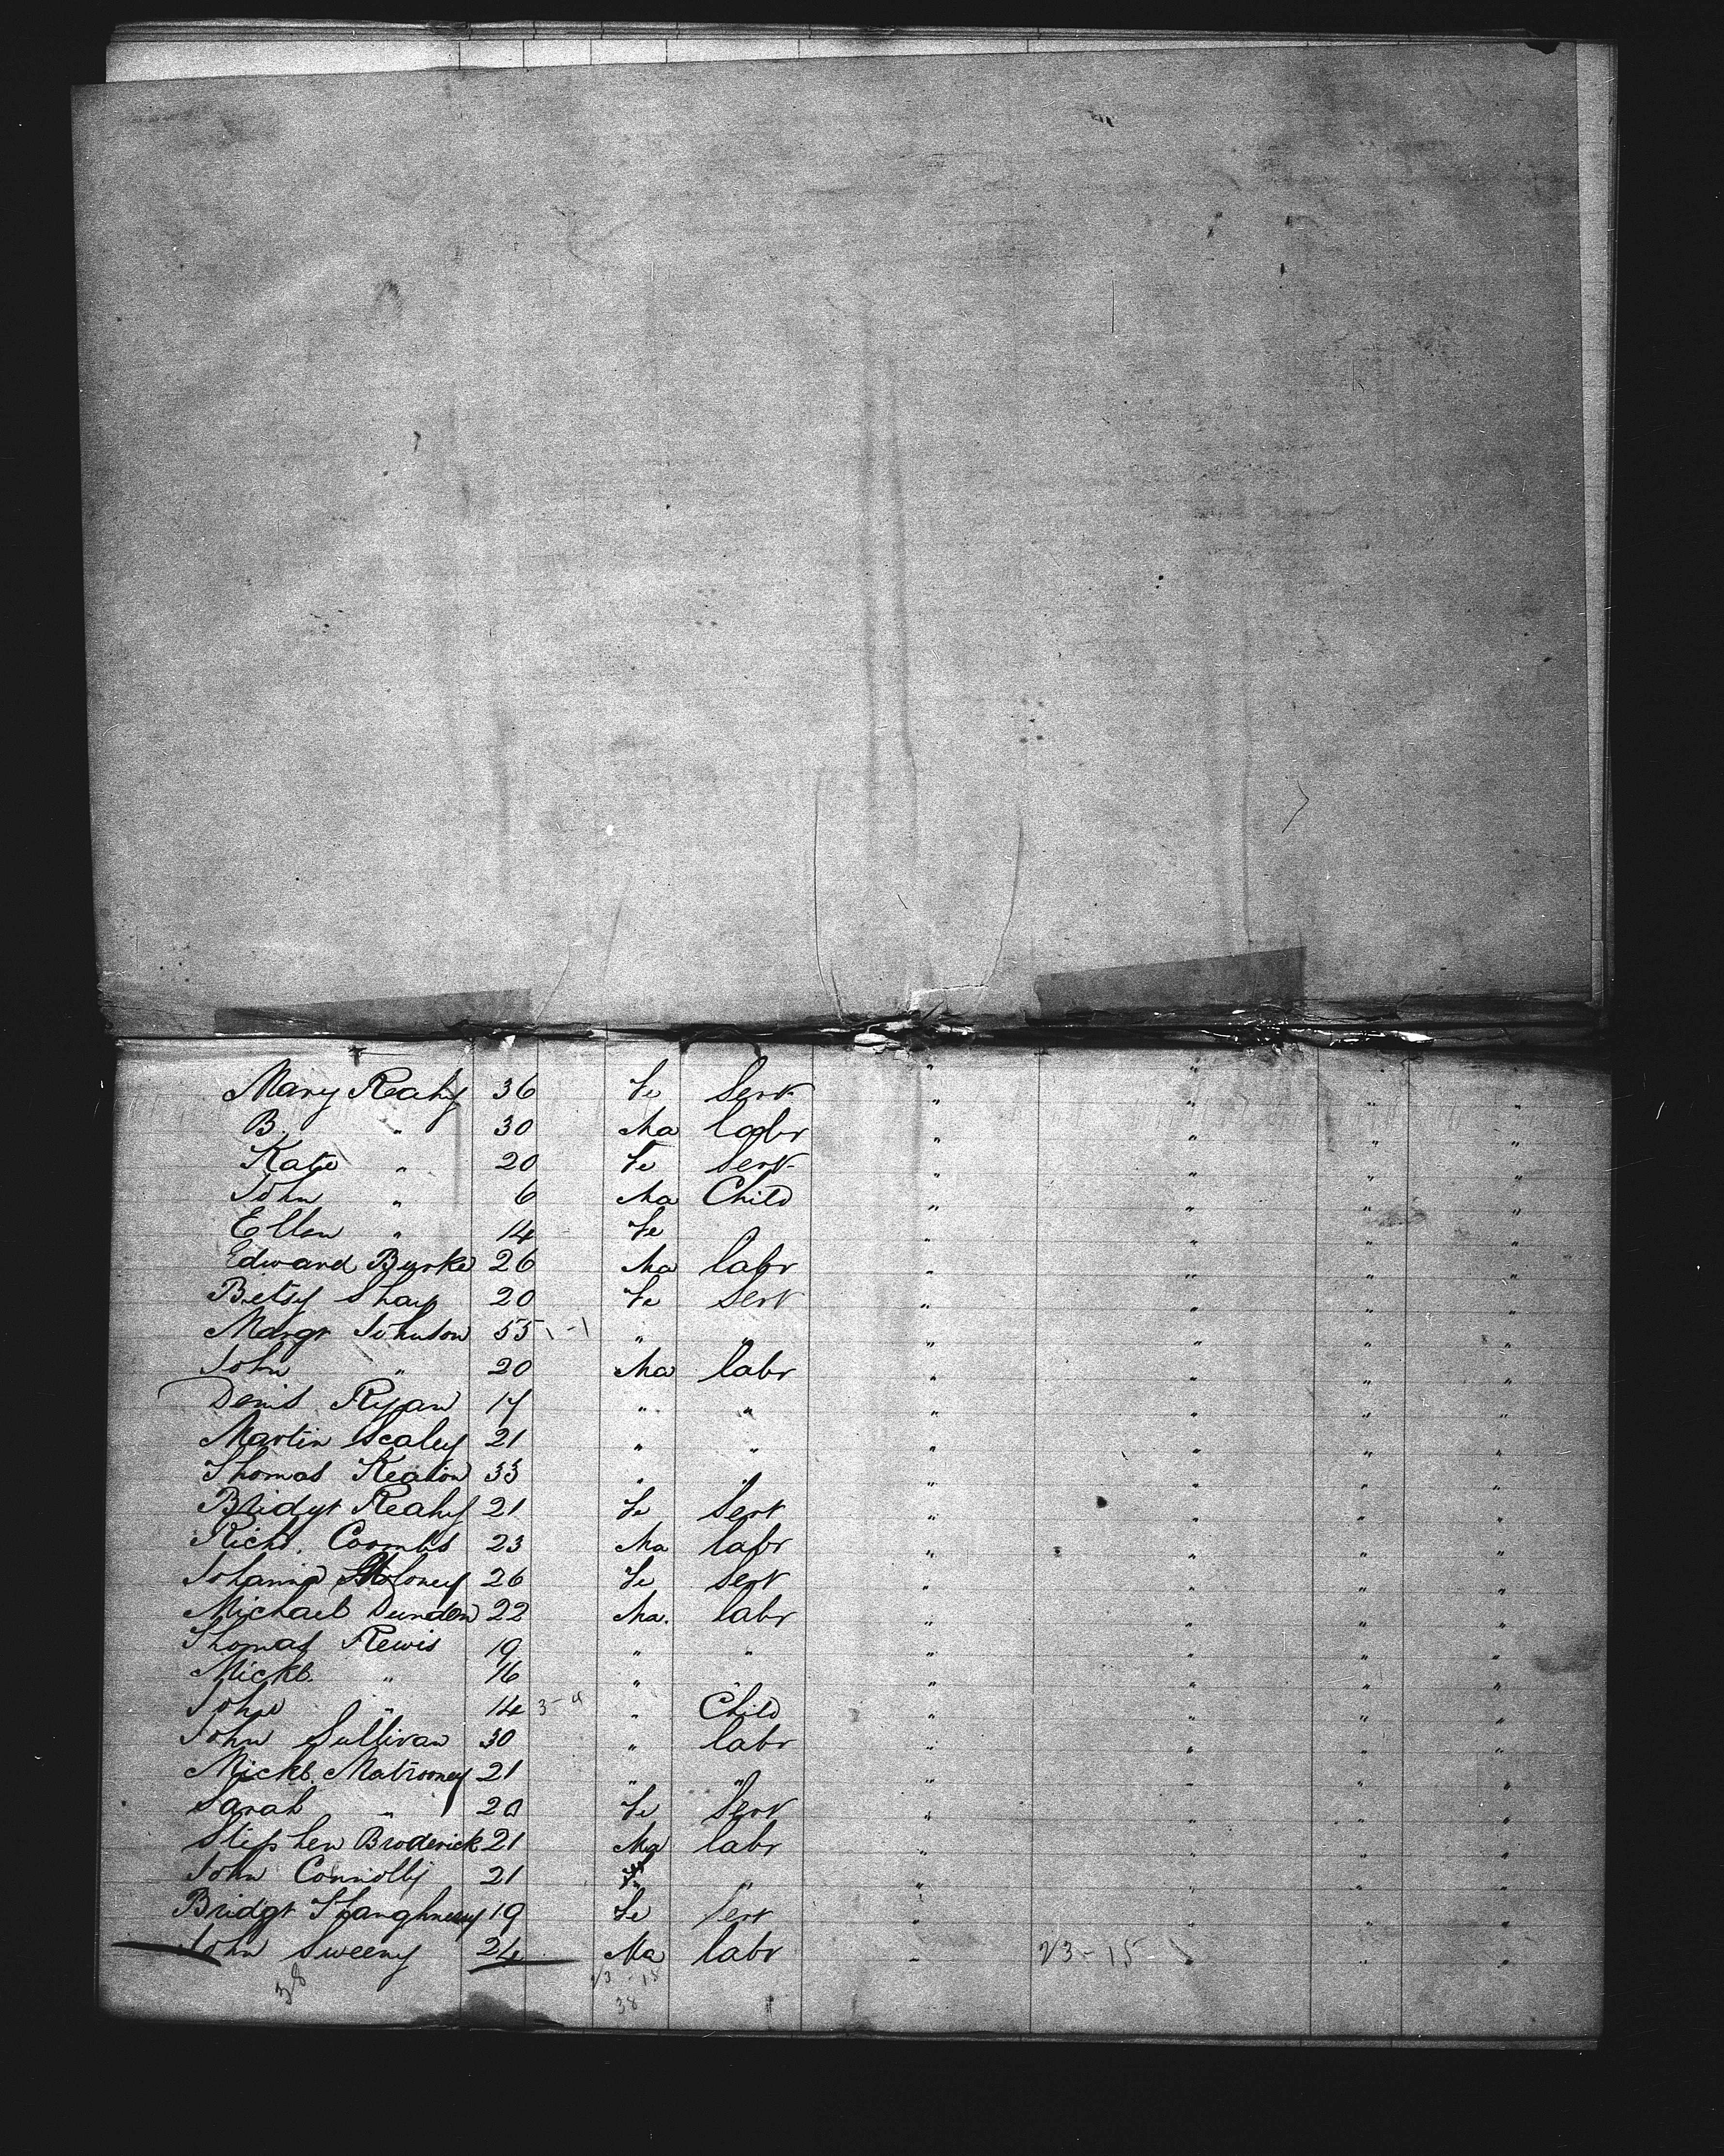 Mary Reahy 36 Fe Serv " " " "
B. " 30 Ma labr " " " "
Kate " 20 Fe Serv " " " "
John " 6 Ma Child " " " "
Ellen " 14 Fe " " " "
Edward Burke 26 Ma labr " " " "
Betsy Sharp 20 Fe Serv " " " "
Margt Johnson 55 1-1 " " " " " "
John " 20 Ma labr " " " "
Denis Ryan 17 " " " " " "
Martin Scaley 21 " " " " " "
Thomas Keation 33 " " " " " "
Bridgt Reahy 21 Fe Serv " " " "
Richd. Coombs 23 Ma labr " " " "
Johanna Moloney 26 Fe Serv " " " "
Michael Dundon 22 Ma. labr " " " "
Thomas Rewis 19 " " " " " "
Michl. " 16 " " " " " "
John " 14 3-4 " Child " " " "
John Sullivan 30 " labr " " " "
Michl. Matrooney 21 " " " " " "
Sarah " 20 Fe Serv " " " "
Stephen Broderick 21 Ma labr " " " "
John Connolly 21 " " " " " "
Bridgt Shaughnessy 19 Fe Serv " " " "
John Sweeny 24 Ma labr " 23-15 " " "
38 23-15
38